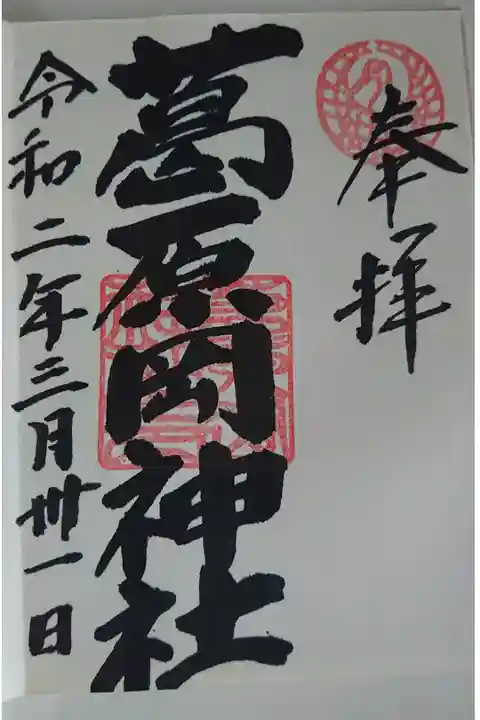 奉拝
葛原岡神社
令和二年三月卅一日